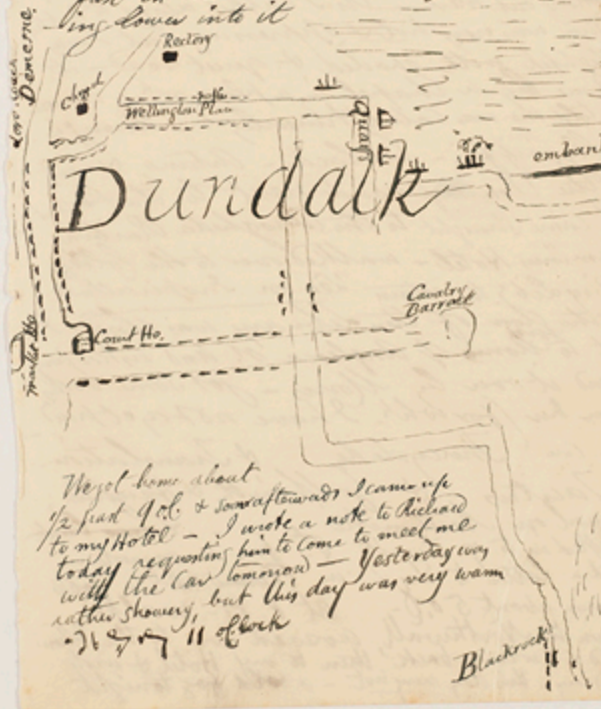 ing lower into it
Rectory
Chapel
Demesne.
Wellington Place
Quay
embank
Dundalk
Cavalry
Barrack
Court Ho.
Market Ho.
We got home about
1/2 past 9 o'c. & soon afterwards I came up
to my Hotel — I wrote a note to Richard
today requesting him to come to meet me
with the Car tomorrow — Yesterday was
rather showery but this day was very warm
11 o'Clock
Blackrock